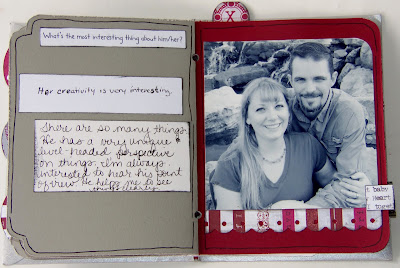 What's the most interesting thing about him/her?
Her creativity is very interesting.
There are so many things.
He has a very unique
level-headed perspective
on things. I'm always
interested to hear his point
of view. He helps me to see
more clearly.
X
baby
Heart
toget